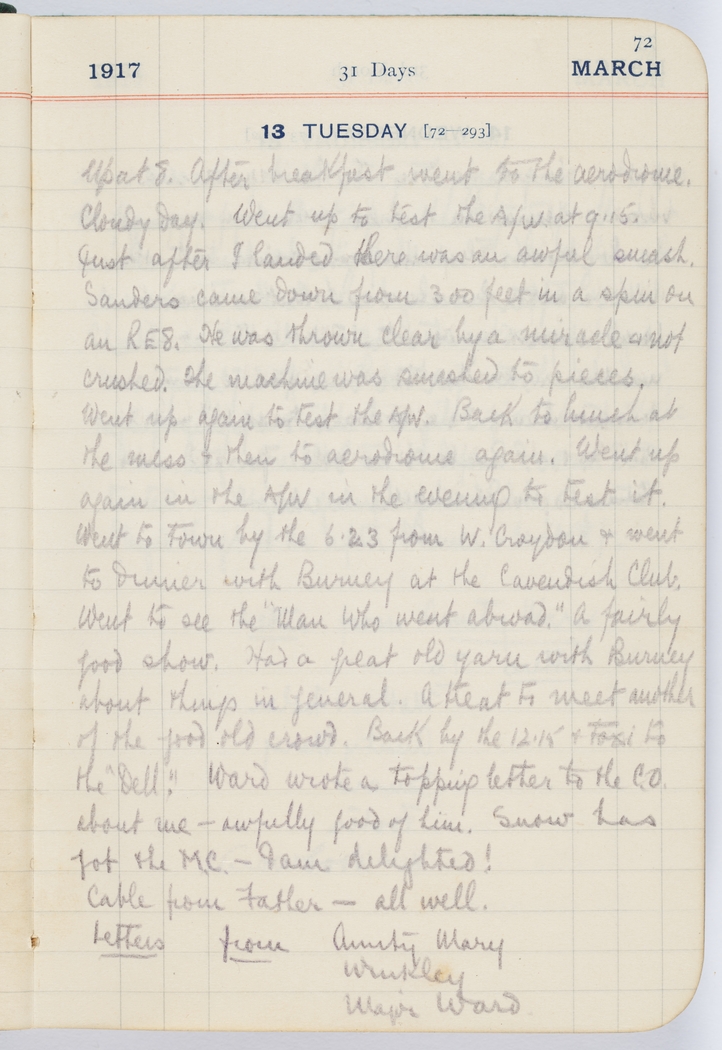 72
1917 31 Days MARCH
13 TUESDAY [72—293]
Up at 8. After breakfast went to the aerodrome.
Cloudy day. Went up to test the A/W. at 9.15.
Just after I landed there was an awful smash.
Sanders came down from 300 feet in a spin on
an RE8. He was thrown clear by a miracle & not
crushed. The machine was smashed to pieces.
Went up again to test the A/W. Back to lunch at
the mess & then to aerodrome again. Went up
again in the A/W in the evening to test it.
Went to Town by the 6.23 from W. Croydon & went
to dinner with Burney at the Cavendish Club.
Went to see the "Man Who went abroad." A fairly
good show. Had a great old yarn with Burney
about things in general. A treat to meet another
of the good old crowd. Back by the 12.15 & taxi to
the "Dell". Ward wrote a topping letter to the C.O.
about me — awfully good of him. Snow has
got the M.C. — I am delighted!
Cable from Father — all well.
Letters from Aunty Mary
Winkley
Major Ward